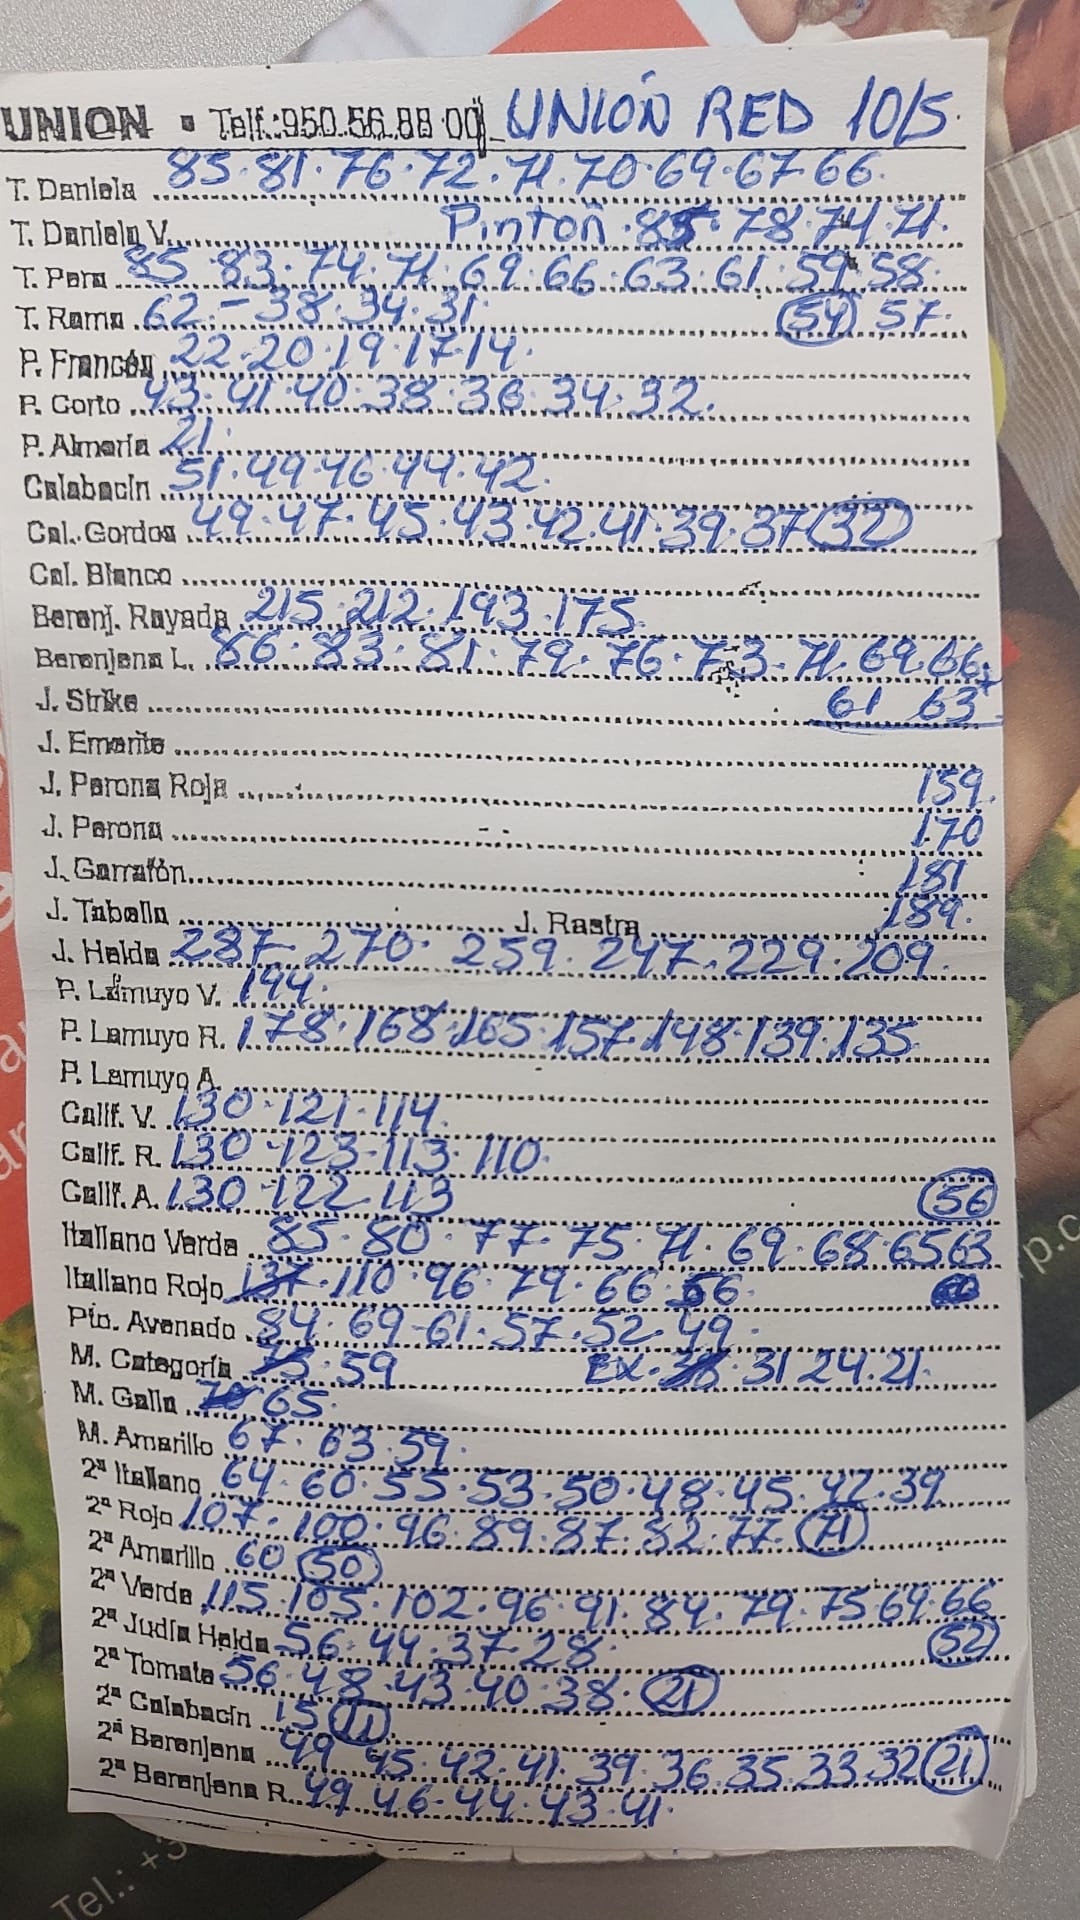 UNION ▪ Telf.: 950.56.88 00 UNIÓN RED 10/5.
T. Daniela 85·81·76·72·71·70·69·67·66.
T. Daniela V. Pinton·85·78·74·71.
T. Pera 85·83·74·71·69·66·63·61·59·58.
T. Rama 62.-38·34·31. 54 57.
P. Francés 22·20·19·17·14.
P. Corto 43·41·40·38·36·34·32.
P. Almería 21.
Calabacín 51·49·46·44·42.
Cal. Gordos 49·47·45·43·42·41·39·37 32
Cal. Blanco
Berenj. Rayada 215·212·193·175.
Berenjena L. 86·83·81·79·76·73·71·69·66.
J. Strike 61 63
J. Emerite
J. Perona Roja 159.
J. Perona 170
J. Garrafón 181
J. Tabella J. Rastra 189.
J. Helda 287·270·259·247·229·209.
P. Lamuyo V. 194.
P. Lamuyo R. 178·168·165·157·148·139·135
P. Lamuyo A.
Calif. V. 130·121·114.
Calif. R. 130·123·113·110.
Calif. A. 130·122·113 56
Italiano Verde 85·80·77·75·71·69·68·65 63
Italiano Rojo 137·110·96·79·66·56.
Pto. Avenado 84·69·61·57·52·49.
M. Categoría 59 EX· 31 24·21.
M. Galia 65.
M. Amarillo 67·63·59.
2ª Italiano 64·60·55·53·50·48·45·42·39
2ª Rojo 107·100·96·89·87·82·77 71
2ª Amarillo 60 50
2ª Verde 115·105·102·96·91·84·79·75 69·66
2ª Judía Helda 56·44·37·28. 52
2ª Tomate 56·48·43·40·38· 21
2ª Calabacín 15 11
2ª Berenjena 49·45·42·41·39·36·35·33·32 21
2ª Berenjena R. 49·46·44·43·41.
Tel.: +3